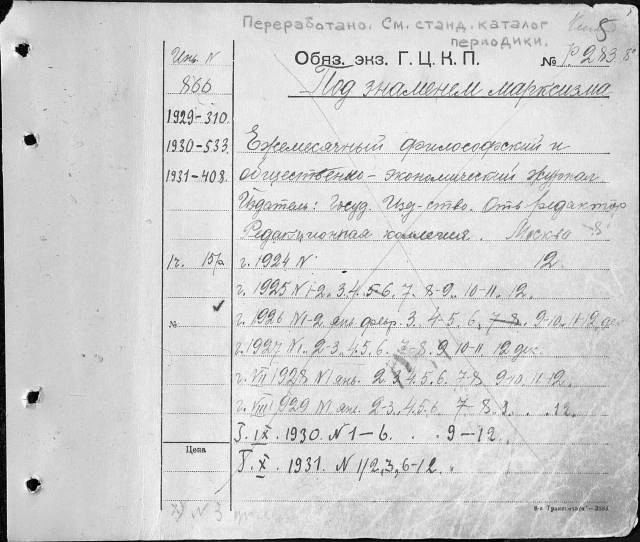 Переработано. См. станд. каталог
периодики.
5
Инв. N
Обяз. экз. Г. Ц. К. П.
№ р 283
866
Под знаменем марксизма
1929-310.
1930-533.
Ежемесячный философский и
1931-408.
общественно-экономический журнал
Издатель: Госуд. Изд-ство. Отв. редактор
Редакционная коллегия. Москва 8°
1 г. 15 р.
г. 1924 N 12.
г. 1925 N 1-2. 3. 4. 5-6. 7. 8-9. 10-11. 12.
№
г. 1926 N 1-2 янв. февр. 3. 4-5. 6. 7-8. 9-10. 11-12 дек
г. 1927 N 1. 2-3. 4. 5. 6. 7-8. 9 10-11. 12 дек.
г. VII 1928 N 1 янв. 2 3. 4. 5. 6. 7-8 9-10. 11-12.
г. VIII 1929 N 1 янв. 2-3. 4. 5. 6. 7-8. 12.
Т. IX. 1930. N 1-6. . . 9-12.
Цена
Т. X. 1931. N 1/2, 3, 6-12.
N 3